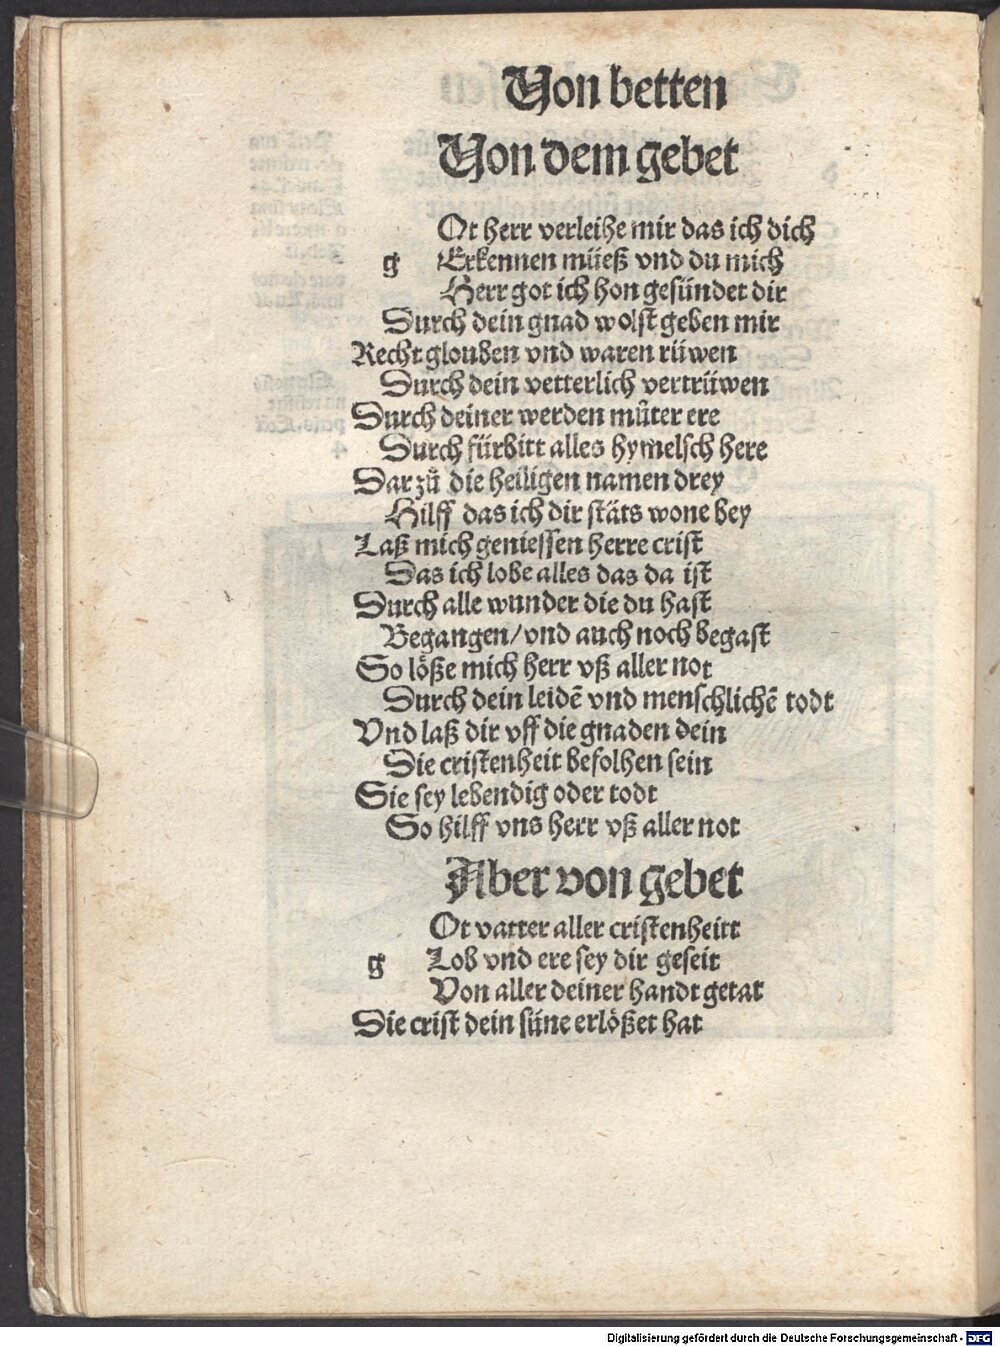 Von betten
Von dem gebet
Ot herr verleihe mir das ich dich
g Erkennen müeß vnd du mich
Herr got ich hon gesündet dir
Durch dein gnad wolst geben mir
Recht glouben vnd waren rüwen
Durch dein vetterlich vertrüwen
Durch deiner werden můter ere
Durch fürbitt alles hymelsch here
Dar zů die heiligen namen drey
Hilff das ich dir stäts wone bey
Laß mich geniessen herre crist
Das ich lobe alles das da ist
Durch alle wunder die du hast
Begangen/vnd auch noch begast
So löße mich herr vß aller not
Durch dein leidē vnd menschlichē todt
Vnd laß dir vff die gnaden dein
Die cristenheit befolhen sein
Sie sey lebendig oder todt
So hilff vns herr vß aller not
Aber von gebet
Ot vatter aller cristenheitt
g Lob vnd ere sey dir geseit
Von aller deiner handt getat
Die crist dein süne erlößet hat
Digitalisierung gefördert durch die Deutsche Forschungsgemeinschaft - DFG